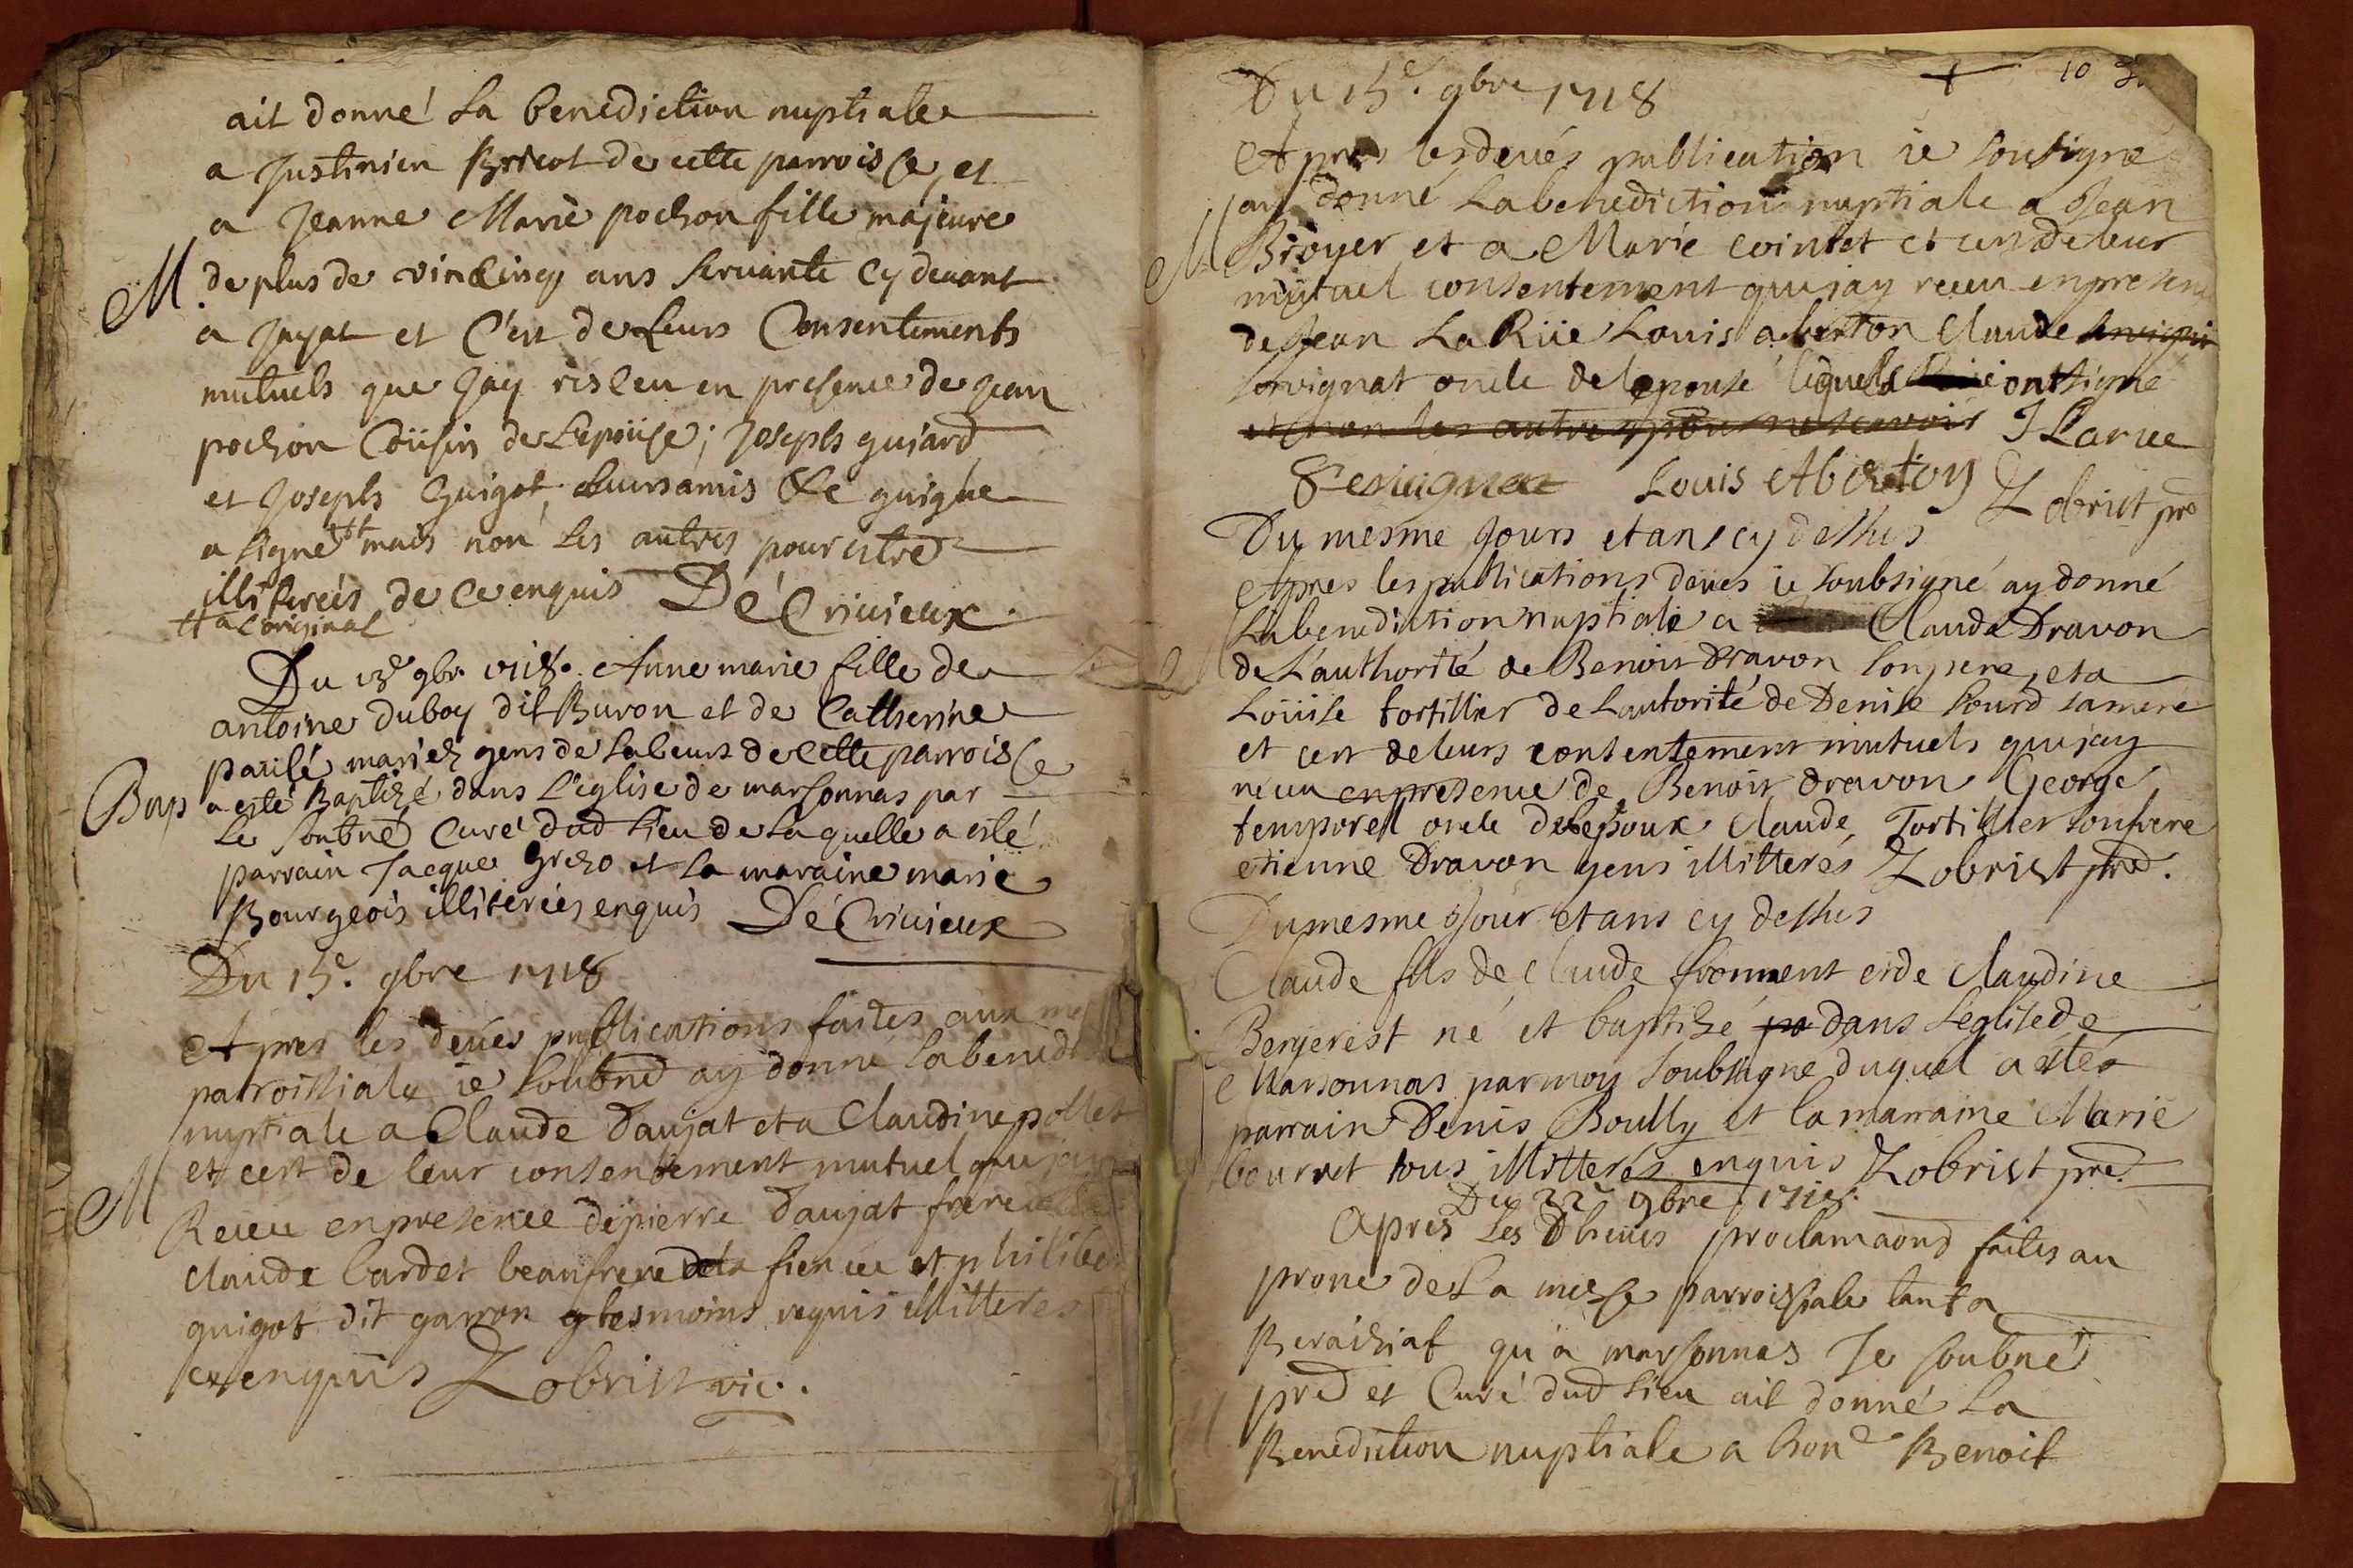 ait donné la benediction nuptiale
a Justinien Bricot de cette parroisse, et
a Jeanne Marie pochon fille majeure
M
de plus de vincinq ans servante cy devant
a Jayat et c'est de leurs Consentements
mutuels que Jay resceu en presence de jean
pochon Cousin de l'epouse; Joseph gujard
et Joseph Guigot, leurs amis Le guigue
a signé ++ mais non les autres pour estre
illiterées de ce enquis De Crivieux.
++ a l'original
Du 13e 9br. 1718. Anne marie fille de
antoine duboy dit Buron et de Catherine
paulé mariez gens de labeurs de cette parroisse
Bap
a esté Baptizé dans l'eglise de marsonnas par
le soubné Curé dud lieu de laquelle a esté
parrain Jacque grezo et la maraine marie
Bourgeois illiterées enquis De Crivieux
Du 15e. 9bre 1718
Apres les deües publications faites aux
parroissiale ie soubné ay donné la bened
nuptiale a Claude Daujat et a Claudine pollet
et cest de leur consentement mutuel que jay
M
Receu en presence de pierre Daujat frere
claude bardet beaufrere de la fiencée et philiber
guigot dit garron tesmoins requis illitteres
enquis Zobrist vic.
+ 10
Du 15e. 9bre 1718
Apres les deües publication ie sousigné
ay donné la benediction nuptiale a Jean
M
Broyer et a Marie cointet et cest de leur
mutuel consentement que jay receu en presen
de Jean La Rüe Louis aberton Claude servigna
servignat oncle de lepouse lequels ont signé
et non les autres pour ne scavoir J Larue
Servignat Louis Aberton Zobrist pre
Du mesme Jours et ans cy dessus
Apres les publications deues ie soubsigné ay donné
la benediction nuptiale a Claude Dravon
de L'authorité de Benoist Dravon son pere, et a
Loüise tortillier de Lautorité de Denise Sourd sa mere
et cest de leurs consentement mutuels que jay
receu en presence de Benoist Dravon George
temporel oncle de lepoux Claude Tortillier son frere
etienne Dravon gens illitterés Zobrist pre.
Du mesme Jour et ans cy dessus
Claude fils de claude froment et de Claudine
Bergerest né et baptizé pa dans Leglise de
Marsonnas par moy soubsigne duquel a estée
parrain Denis Boully et la marraine Marie
bourret tous illitterés enquis Zobrist pre
Du 22e 9bre 1718.
Apres Les Dheües proclamaond faites au
prone de La messe parroissiale tant a
Beraiziat qu'a marsonnas Je soubné
pred et Curé dud lieu ait donné la
Benediction nuptiale a hone Benoit